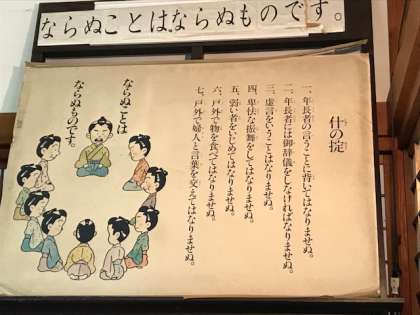 ならぬことはならぬものです。
什の掟
一、年長者の言うことに背いてはなりませぬ。
二、年長者には御辞儀をしなければなりませぬ。
三、虚言をいうことはなりませぬ。
四、卑怯な振舞をしてはなりませぬ。
五、弱い者をいじめてはなりませぬ。
六、戸外で物を食べてはなりませぬ。
七、戸外で婦人と言葉を交えてはなりませぬ。
ならぬことは
ならぬものです。